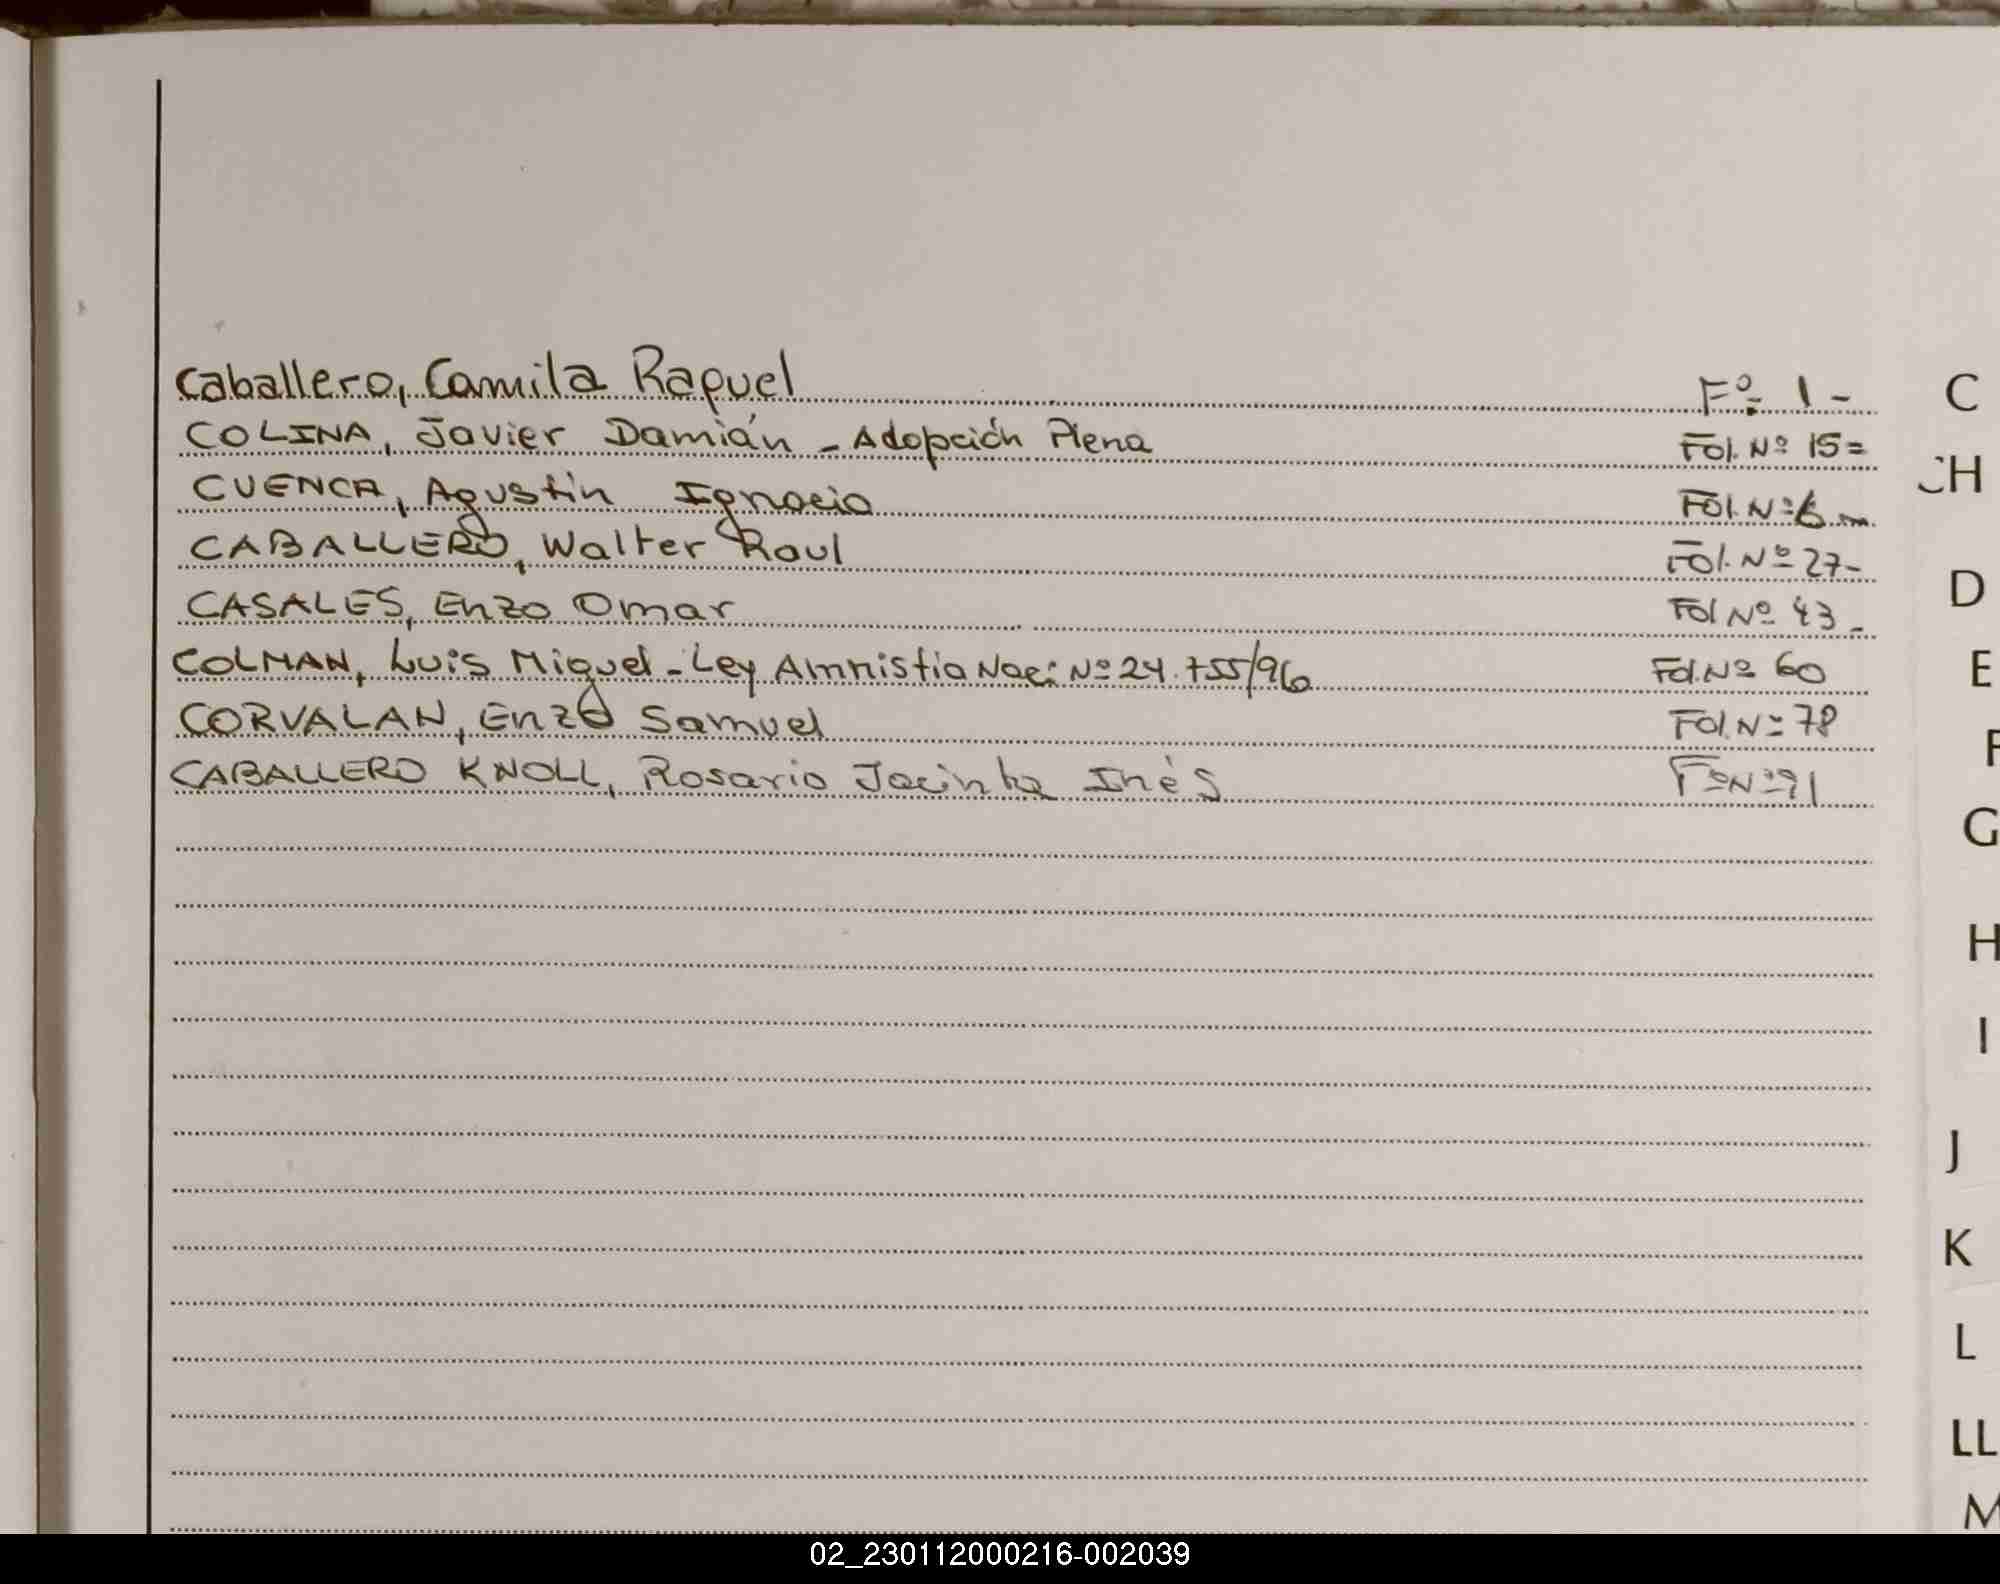 Caballero, Camila Raquel Fº 1-
COLINA, Javier Damián - Adopción Plena Fol. Nº 15=
CUENCA, Agustin Ignacio Fol. Nº 6
CABALLERO, Walter Raul Fol. Nº 27-
CASALES, Enzo Omar Fol Nº 43-
COLMAN, Luis Miguel - Ley Amnistia Nac: Nº 24.755/96 Fol. Nº 60
CORVALAN, Enzo Samuel Fol. Nº 78
CABALLERO KNOLL, Rosario Jacinta Inés Fº Nº 91
C
CH
D
E
F
G
H
I
J
K
L
LL
M
02_230112000216-002039